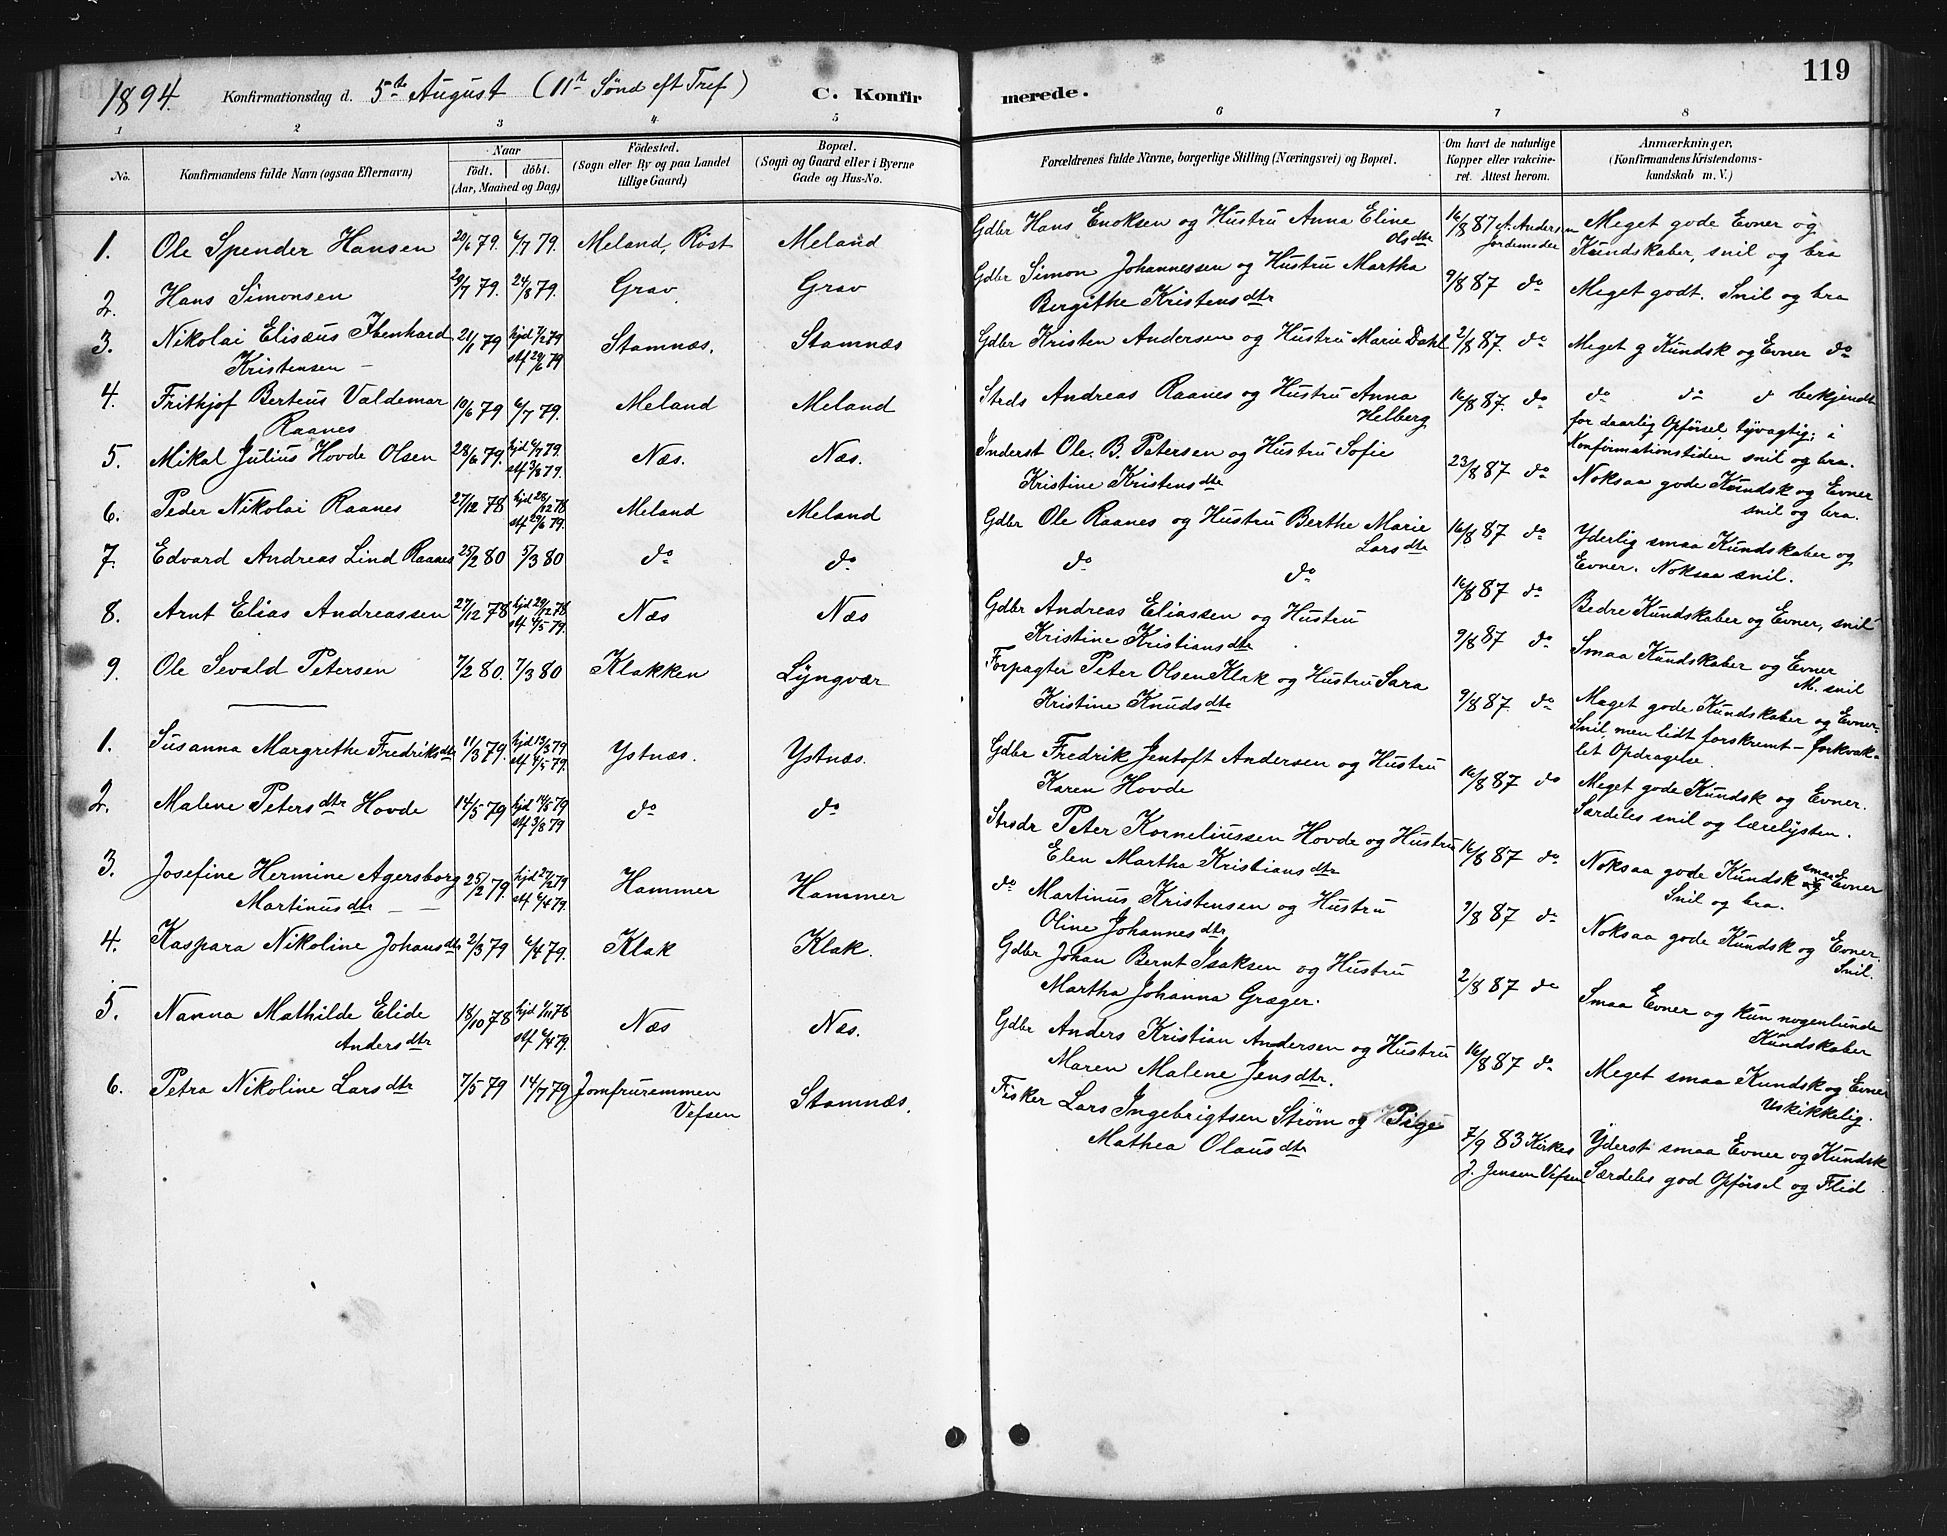 119
1894. Konfirmationsdag d. 5te August (11te Sønd eft Tref) C. Konfirmerede.
1 2 3 4. 5 6 7 8
No. Konfirmandens fulde Navn (ogsaa Efternavn) Naar födt. döbt. (Aar, Maaned og Dag) Födested. (Sogn eller By og paa Landet tillige Gaard) Bopæl. (Sogn og Gaard eller i Byerne Gade og Hus-No. Forældrenes fulde Navne, borgerlige Stilling (Næringsvei) og Bopæl. Om havt de naturlige Kopper eller vakcineret. Attest herom. Anmærkninger, (Konfirmandens Kristendomskundskab m. V.)
1. Ole Spender Hansen 20/6 79. 6/7 79. Meland, Røst Meland Gdbr Hans Enoksen og Hustru Anna Eline Olsdtr 16/8 87 A. Andersen Jordemoder Meget gode Evner og Kundskaber, snil og bra
2. Hans Simonsen 29/7 79. 24/8 79. Grav Grav Gdbr Simon Johannessen og Hustru Martha Bergithe Kristensdtr 9/8 87 do Meget godt. Snil og bra
3. Nikolai Elisæus Ibenhard Kristensen 21/1 79 hjd 7/2 79 stf 29/6 79 Stamnæs. Stamnæs Gdbr Kristen Andersen og Hustru Marie Dahl 2/8 87. do Meget g Kundsk og Evner do
4. Frithjof Berteus Valdemar Raanes 10/6 79 6/7 79. Meland Meland Strds Andreas Raanes og Hustru Anna Helberg 16/8 87. do do do d bekjendt for daarlig Opførsel, tyvagtig; i Konfirmationstiden snil og bra.
5. Mikal Julius Hovde Olsen 28/6 79. hjd 6/7 79. stf 3/8 79. Næs. Næs. Inderst Ole. B. Petersen og Hustru Sofie Kristine Kristensdtr 23/8 87 do Noksaa gode Kundsk og Evner snil og bra.
6. Peder Nikolai Raanes 27/12 78 hjd 28/12 78 stf 29/6 79. Meland Meland Gdbr Ole Raanes og Hustru Berthe Marie Larsdtr 16/8 87 do Yderlig smaa Kundskaber og Evner. Noksaa snil.
7. Edvard Andreas Lind Raanes 25/2 80 5/3 80 do do do do 16/8 87 do Bedre Kundskaber og Evner, snil
8. Arnt Elias Andreassen 27/12 78 hjd 29/12 78 stf 4/5 79. Næs Næs Gdbr Andreas Eliassen og Hustru Kristine Kristiansdtr 9/8 87 do Smaa Kundskaber og Evner M. snil
9. Ole Sevald Petersen 7/2 80. 7/3 80 Klakken Lyngvær Forpagter Peter Olsen Klak og Hustru Sara Kristine Knudsdtr 9/8 87. do Meget gode Kundskaber og Evner. Snil, men lidt forskremt – forkvaklet Opdragelse.
1. Susanna Margrethe Fredriksdtr 11/3 79. hjd 13/3 79 stf 4/5 79. Ystnæs. Ystnæs. Gdbr Fredrik Jentoft Andersen og Hustru Karen Hovde 16/8 87 do Meget gode Kundsk og Evner. Særdeles snil og lærelysten.
2. Malene Petersdtr Hovde 14/5 79 hjd 14/5 79 stf 3/8 79 do do Strsdr Peter Korneliussen Hovde og Hustru Elen Martha Kristiansdtr 16/8 87 do Noksaa gode Kundsk smaa Evner Snil og bra.
3. Josefine Hermine Agersborg Martinusdtr 25/2 79. hjd 27/2 79 stf 6/4 79. Hammer Hammer do Martinus Kristensen og Hustru Oline Johannesdtr 9/8 87 do Noksaa gode Kundsk og Evner. Snil.
4. Kaspara Nikoline Johansdtr 2/3 79 6/4 79. Klak Klak. Gdbr Johan Bernt Isaksen og Hustru Martha Johanna Græger. 2/8 87 do Smaa Evner og kun nogenlunde Kundskaber
5. Nanna Mathilde Elide Andersdtr 18/10 78 hjd 1/11 78 stf 6/4 79. Næs Næs. Gdbr Anders Kristian Andersen og Hustru Maren Malene Jensdtr. 16/8 87 do Meget smaa Kundsk og Evner Uskikkelig.
6. Petra Nikoline Larsdtr 7/5 79 14/7 79 Jomfruremmen Vefsen Stamnæs. Fisker Lars Ingebrigtsen Strøm og Pige Mathea Olausdtr 7/9 83 Kirkes J. Jensen Vefsen Yderst smaa Evner og Kundsk Særdeles god Opførsel og Flid